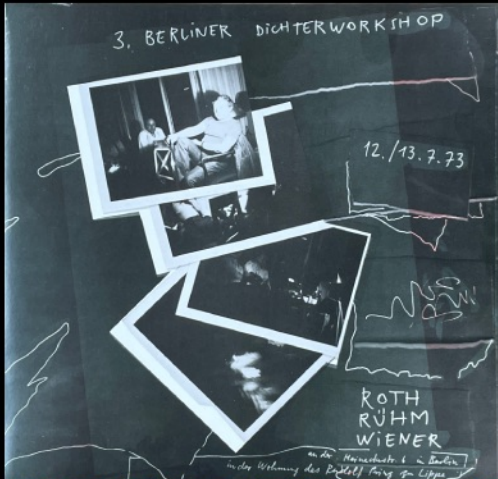 3. BERLINER DICHTERWORKSHOP
12./13.7.73
ROTH
RÜHM
WIENER
an der in Berlin
in der Wohnung des Prinz zur Lippe